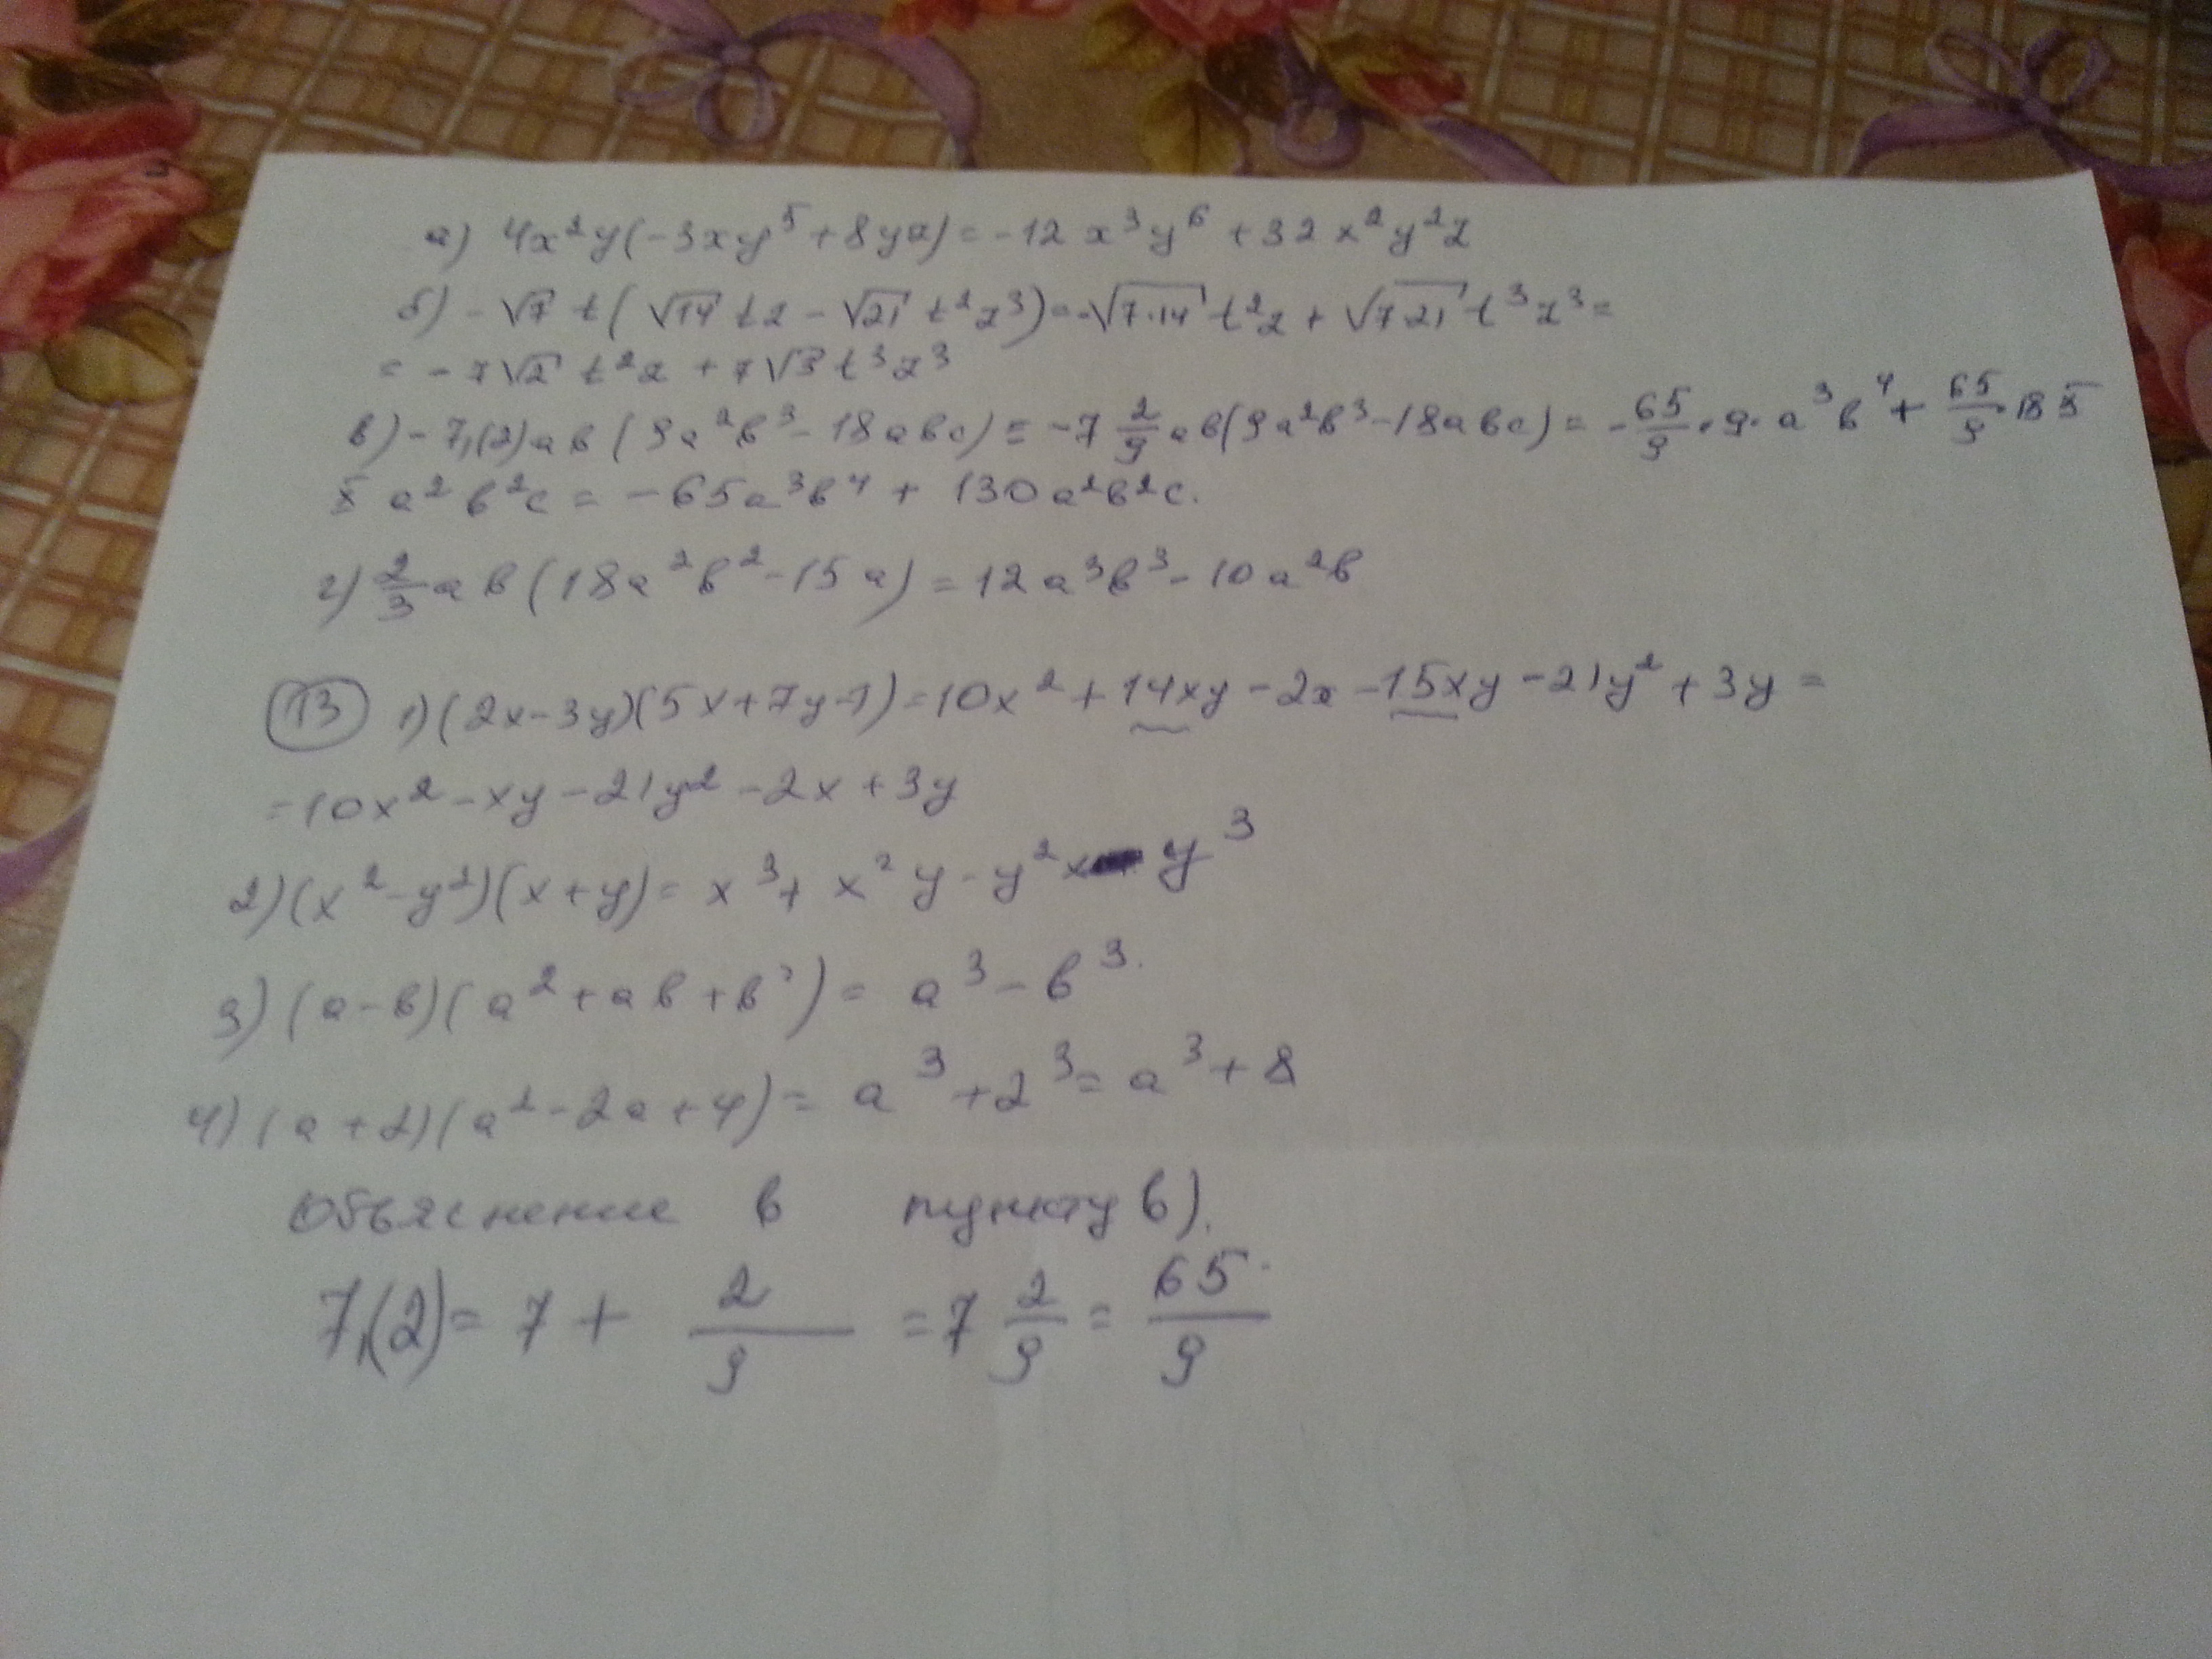 а) 4x²y(-3xy⁵+8yz)=-12x³y⁶+32x²y²z
б) -√7 t(√14 tz-√21 t²z³)=-√7·14 t²z+√7·21 t³z³=
=-7√2 t²z+7√3 t³z³
в) -7,(2)ab(9a²b³-18abc)=-7 2/9 ab(9a²b³-18abc)=-65/9·9·a³b⁴+65/9·18×
× a²b²c=-65a³b⁴+130a²b²c.
г) 2/3 ab(18a²b²-15a)=12a³b³-10a²b
13 1)(2x-3y)(5x+7y-1)=10x²+14xy-2x-15xy-21y²+3y=
=10x²-xy-21y²-2x+3y
2)(x²-y²)(x+y)=x³+x²y-y²x-y³
3)(a-b)(a²+ab+b²)=a³-b³.
4)(a+2)(a²-2a+4)=a³+2³=a³+8
Объяснение в пункту в).
7,(2)=7+2/9=7 2/9=65/9